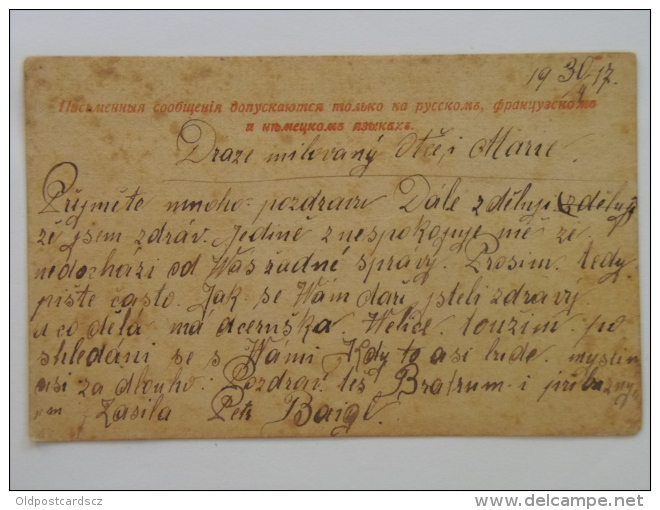 19 30/4 17.
Письменныя сообщенія допускаются только на русскомъ, французскомъ
и нѣмецкомъ языкахъ.
Draze milovaný Otče i Marie
Přijměte mnoho pozdravu Dále zděluji
že jsem zdráv. Jedině znespokojuje mě že
nedochází od Was žádné správy. Prosím tedy
pište často. Jak se Wám daří, jsteli zdravý
a co dělá má dceruška. Welice toužím po
shledání se s Wámi Kdy to asi bude. myslím
asi za dlouho. Pozdrav též Bratrum i příbuzný
m Zasila Petr Baigl.
Oldpostcardscz
delcampe.net